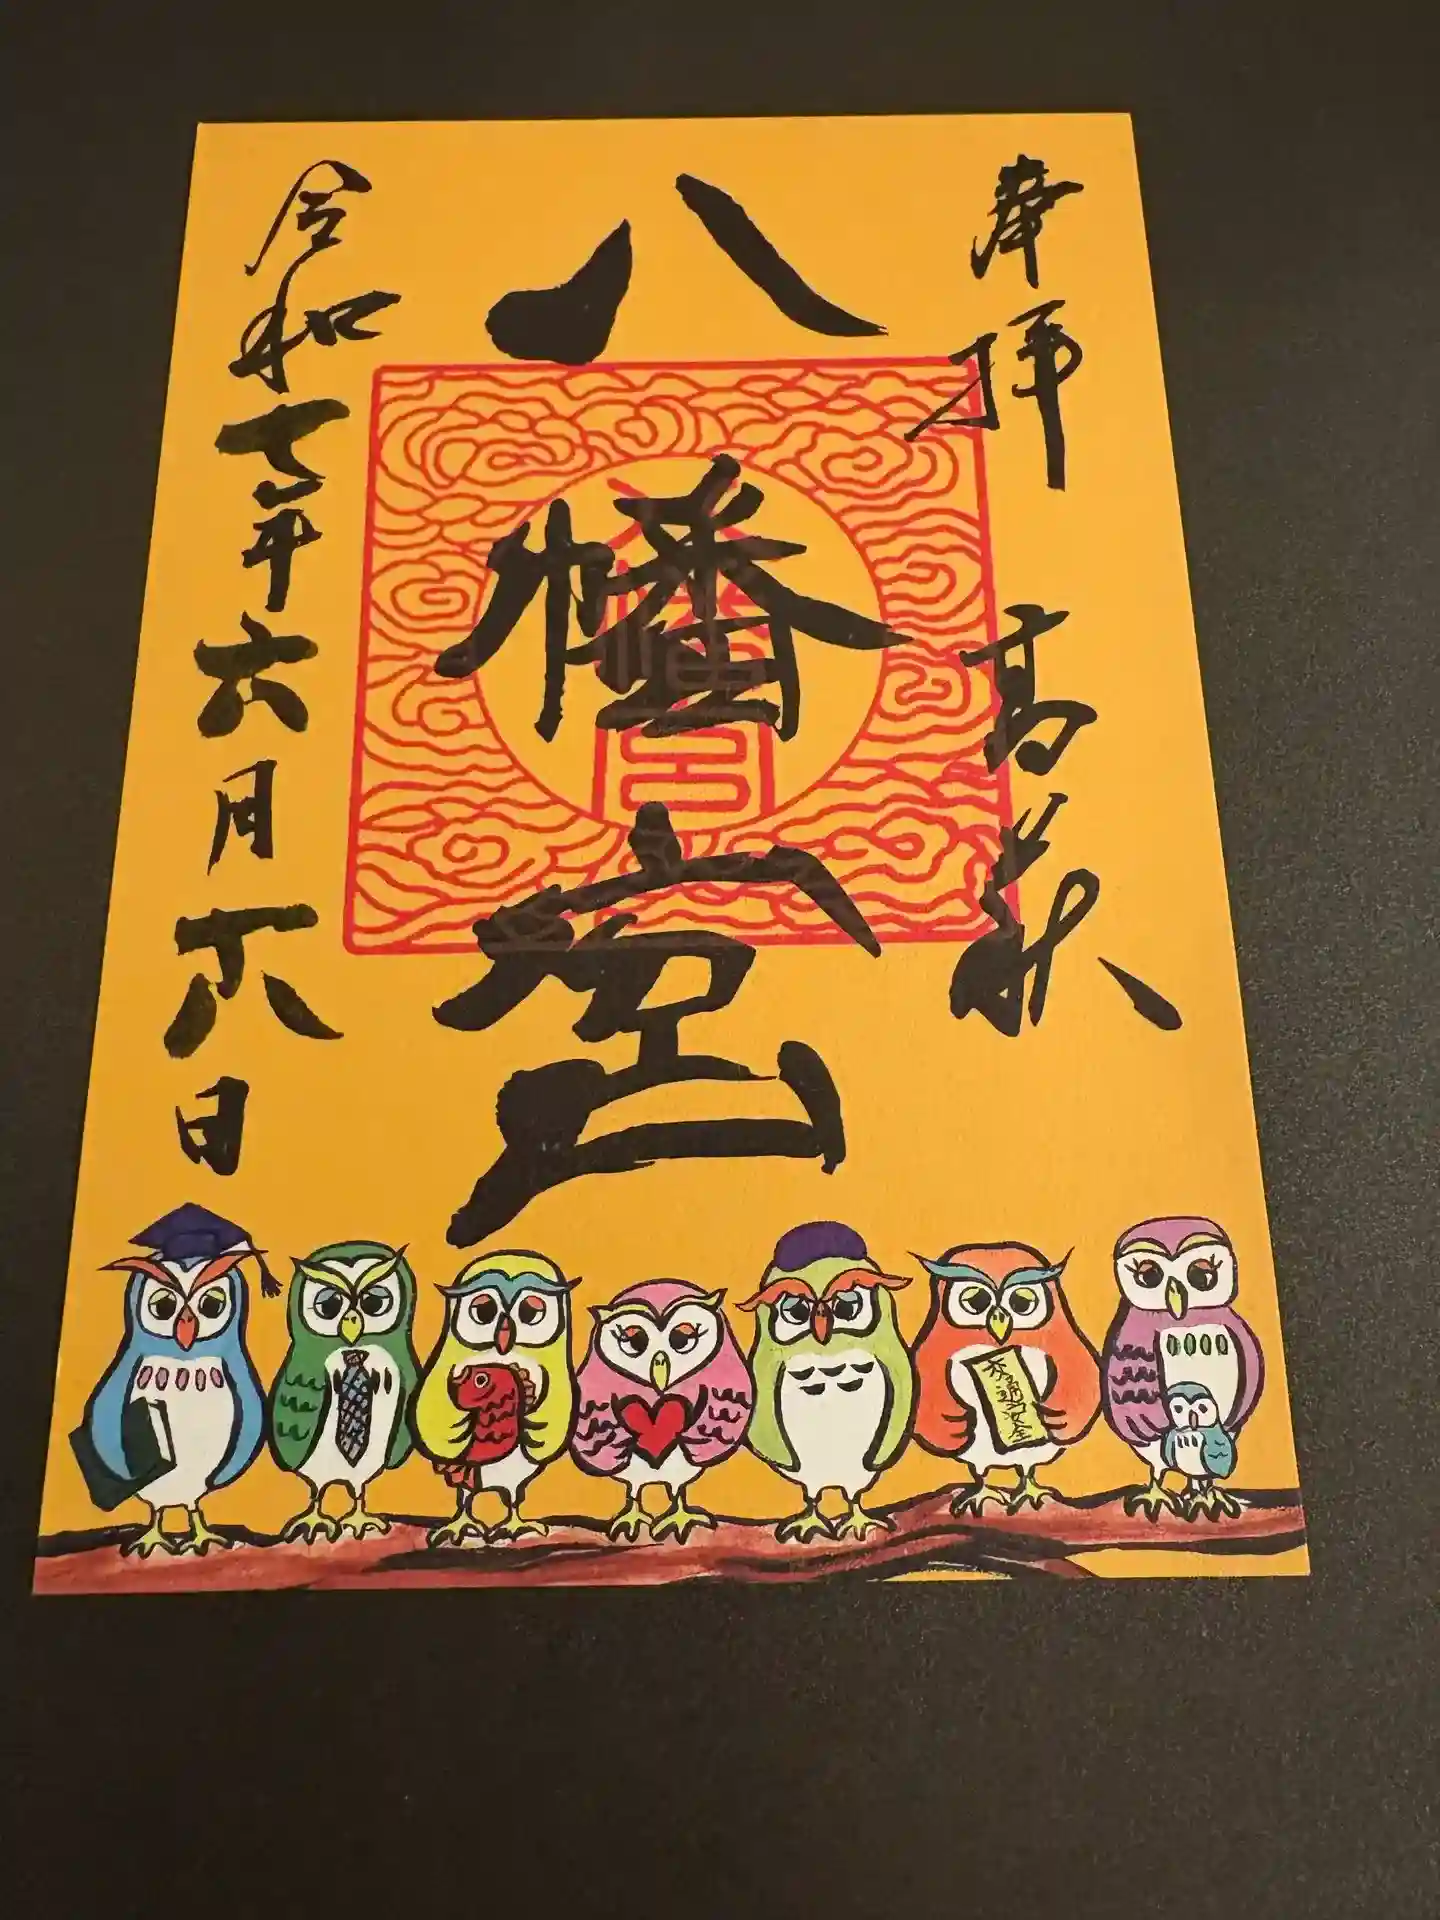 奉拝 高萩
八幡宮
八幡宮
令和七年六月六日
交通安全